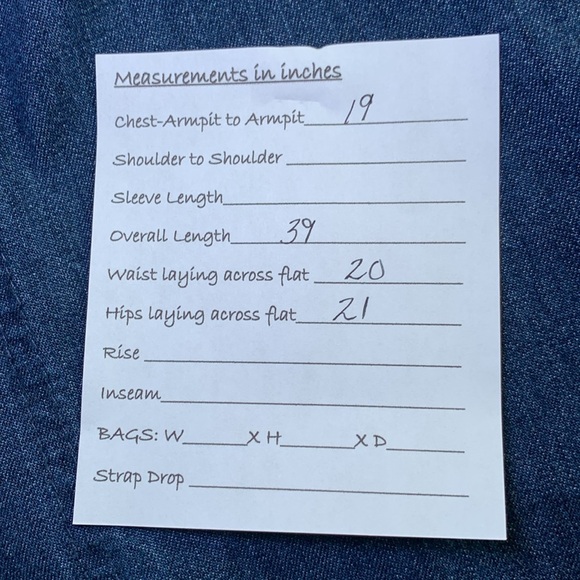 Measurements in inches
Chest-Armpit to Armpit 19
Shoulder to Shoulder
Sleeve Length
Overall Length 39
Waist laying across flat 20
Hips laying across flat 21
Rise
Inseam
BAGS: W______X H______X D______
Strap Drop